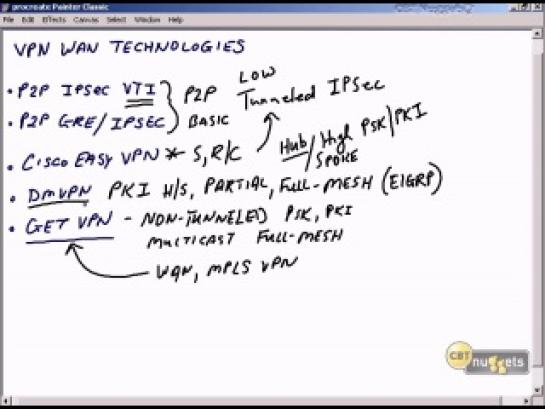 procreate Painter Classic
File Edit Effects Canvas Select Window Help
VPN WAN TECHNOLOGIES
• P2P IPSec VTI } P2P LOW Tunneled IPSec
• P2P GRE/IPSEC } BASIC Hub/High PSK/PKI
SPOKE
• CISCO EASY VPN * S, R/C
• DMVPN PKI H/S, PARTIAL, FULL-MESH (EIGRP)
• GET VPN - NON-TUNNELED PSK, PKI
MULTICAST FULL-MESH
WAN, MPLS VPN
CBT nuggets